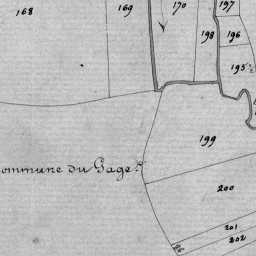 168
169
170
197
198
196
195
199
ommune du Gage
200
201
202
26